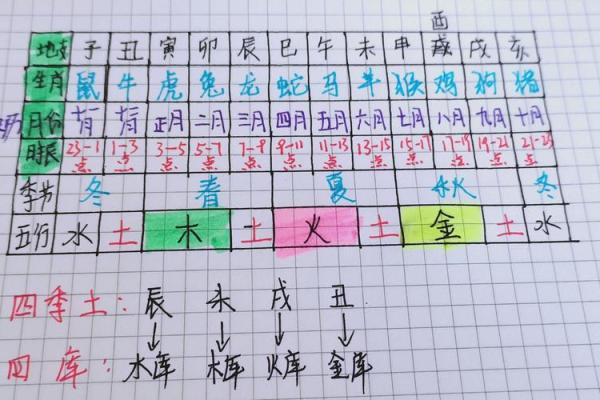 酉
地支 子 丑 寅 卯 辰 巳 午 未 申 戌 亥
生肖 鼠 牛 虎 兔 龙 蛇 马 羊 猴 鸡 狗 猪
月份 正月 二月 三月 四月 五月 六月 七月 八月 九月 十月
时辰 23-1点 1-3点 3-5点 5-7点 7-9点 9-11点 11-13点 13-15点 15-17点 17-19点 19-21点 21-23点
季节 冬 春 夏 秋 冬
五行 水 土 木 土 火 土 金 土 水
四季土: 辰 未 戌 丑
四库: 水库 木库 火库 金库